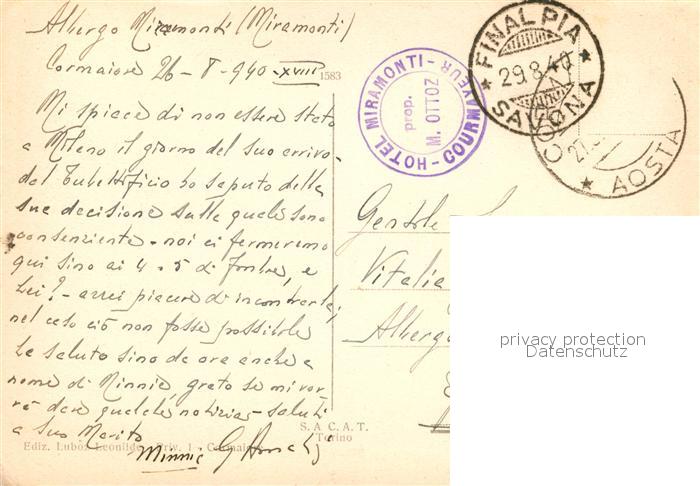 Albergo Miramonti (Miramonti)
Cormaiore 26-8-940-XVIII
1583
Mi spiace di non essere stato
a Milano il giorno del suo arrivo-
dal Tubettificio ho saputo della
sua decisione sulla quale sono
consenziente - noi ci fermeremo
qui sino ai 4-5 di , e
Lei? - avrei piacere di incontrarla;
nel caso ciò non fosse possibile
La saluto sino da ora anche a
nome di Minnie, grato se mi vor-
rà dare qualche notizia - saluti
a Suo Marito
Minnie
HOTEL MIRAMONTI - COURMAYEUR -
prop.
M. OTTOZ
FINALPIA
29.8.40
SAVONA
AOSTA
Gentile
Vitalia
Albergo
S.A.C.A.T.
Torino
Ediz. Luboz Leonilde - Priv. 1 -
privacy protection
Datenschutz